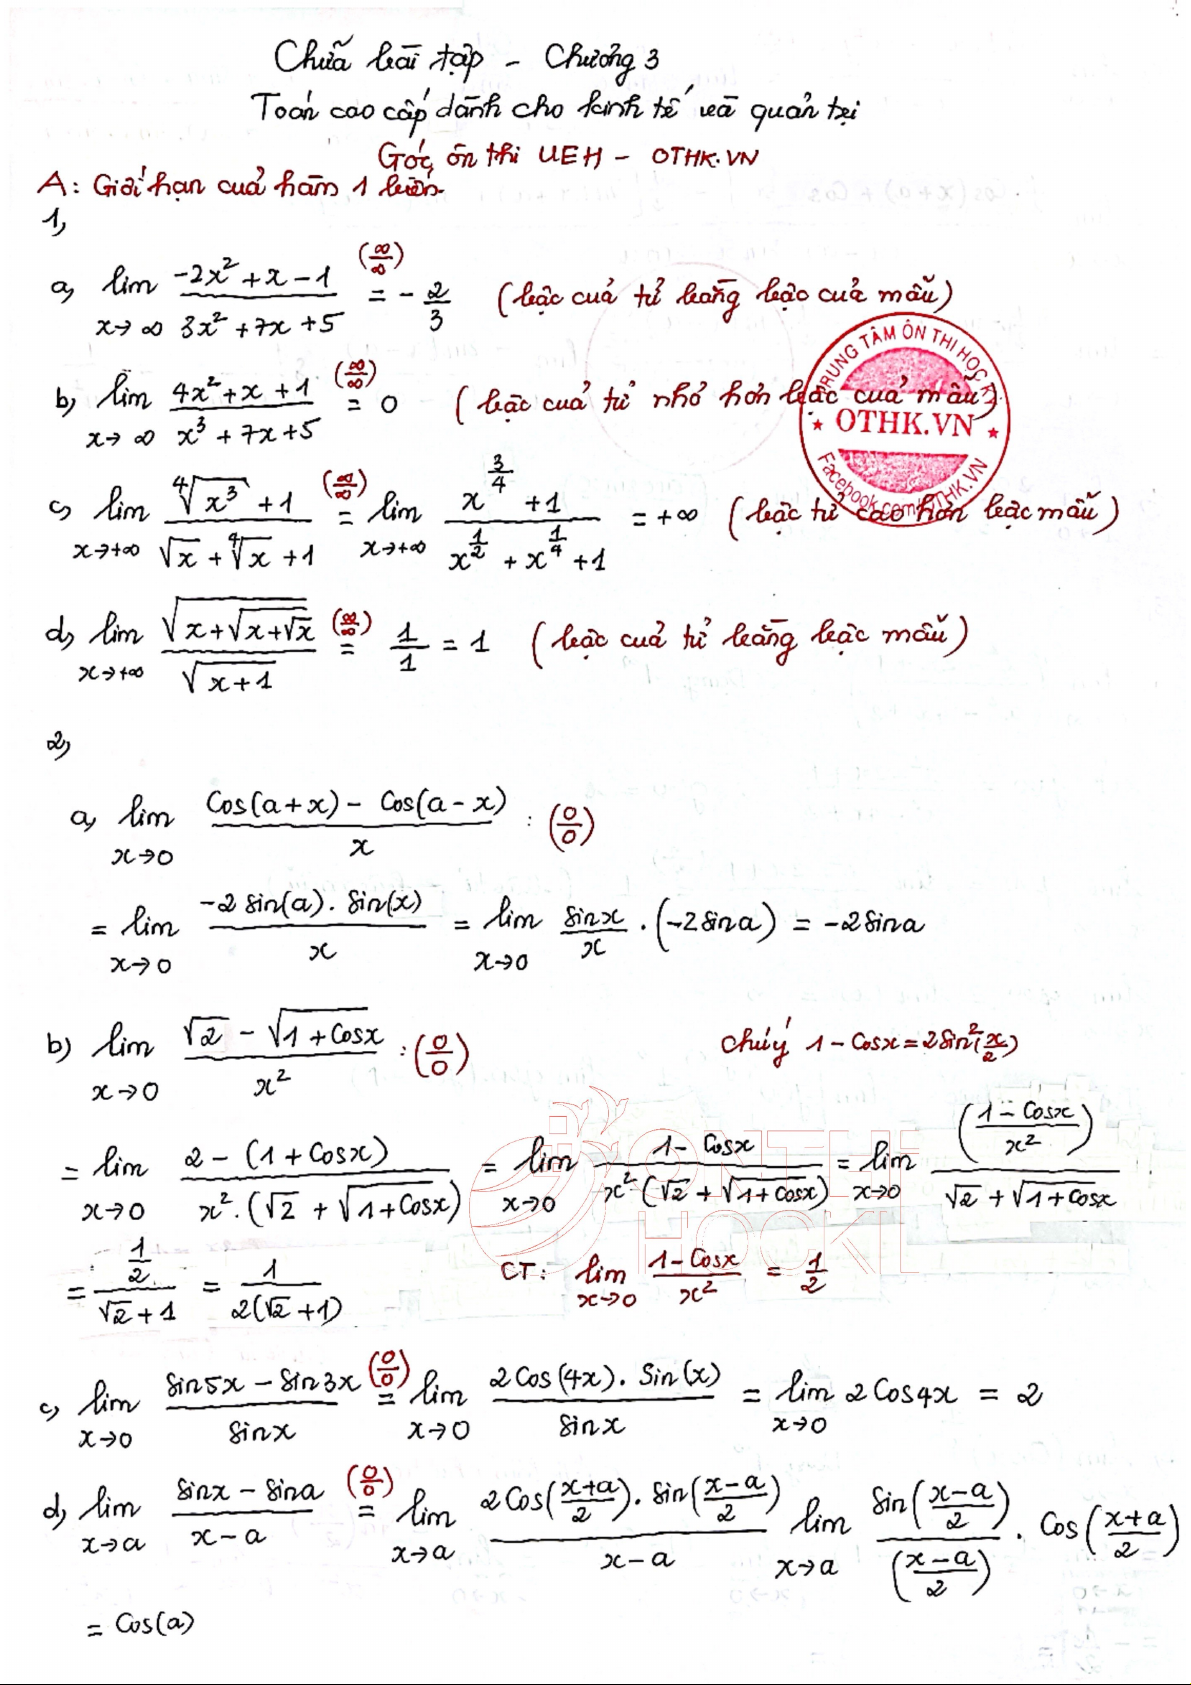 Chữa bài tập - Chương 3
Toán cao cấp dành cho kinh tế và quản trị
Góc ôn thi UEH - OTHK.VN
A: Giới hạn của hàm 1 biến.
1,
a, lim x→∞ (-2x² + x - 1)/(3x² + 7x + 5) (∞/∞) = -2/3 (bậc của tử bằng bậc của mẫu)
b) lim x→∞ (4x² + x + 1)/(x³ + 7x + 5) (∞/∞) = 0 (bậc của tử nhỏ hơn bậc của mẫu)
TRUNG TÂM ÔN THI HỌC K
★ OTHK.VN ★
Facebook.com/OTHK.VN
c, lim x→+∞ (⁴√x³ + 1)/(√x + ⁴√x + 1) (∞/∞) = lim x→+∞ (x^(3/4) + 1)/(x^(1/2) + x^(1/4) + 1) = +∞ (bậc tử cao hơn bậc mẫu)
d, lim x→+∞ √(x + √(x + √x))/√(x + 1) (∞/∞) = 1/1 = 1 (bậc của tử bằng bậc mẫu)
2,
a, lim x→0 (Cos(a+x) - Cos(a-x))/x : (0/0)
= lim x→0 (-2 Sin(a). Sin(x))/x = lim x→0 Sinx/x . (-2 Sina) = -2Sina
b) lim x→0 (√2 - √(1 + Cosx))/x² : (0/0) Chú ý 1 - Cosx = 2Sin²(x/2)
= lim x→0 (2 - (1 + Cosx))/(x².(√2 + √(1 + Cosx))) = lim x→0 (1 - Cosx)/(x².(√2 + √(1 + Cosx))) = lim x→0 ((1 - Cosx)/x²)/(√2 + √(1 + Cosx))
ONTHI
HOCKI
= (1/2)/(√2 + 1) = 1/(2(√2 + 1)) CT: lim x→0 (1 - Cosx)/x² = 1/2
c, lim x→0 (Sin5x - Sin3x)/Sinx (0/0) = lim x→0 (2Cos(4x). Sin(x))/Sinx = lim x→0 2Cos4x = 2
d, lim x→a (Sinx - Sina)/(x - a) (0/0) = lim x→a (2Cos((x+a)/2). Sin((x-a)/2))/(x - a) lim x→a Sin((x-a)/2)/((x-a)/2) . Cos((x+a)/2)
= Cos(a)